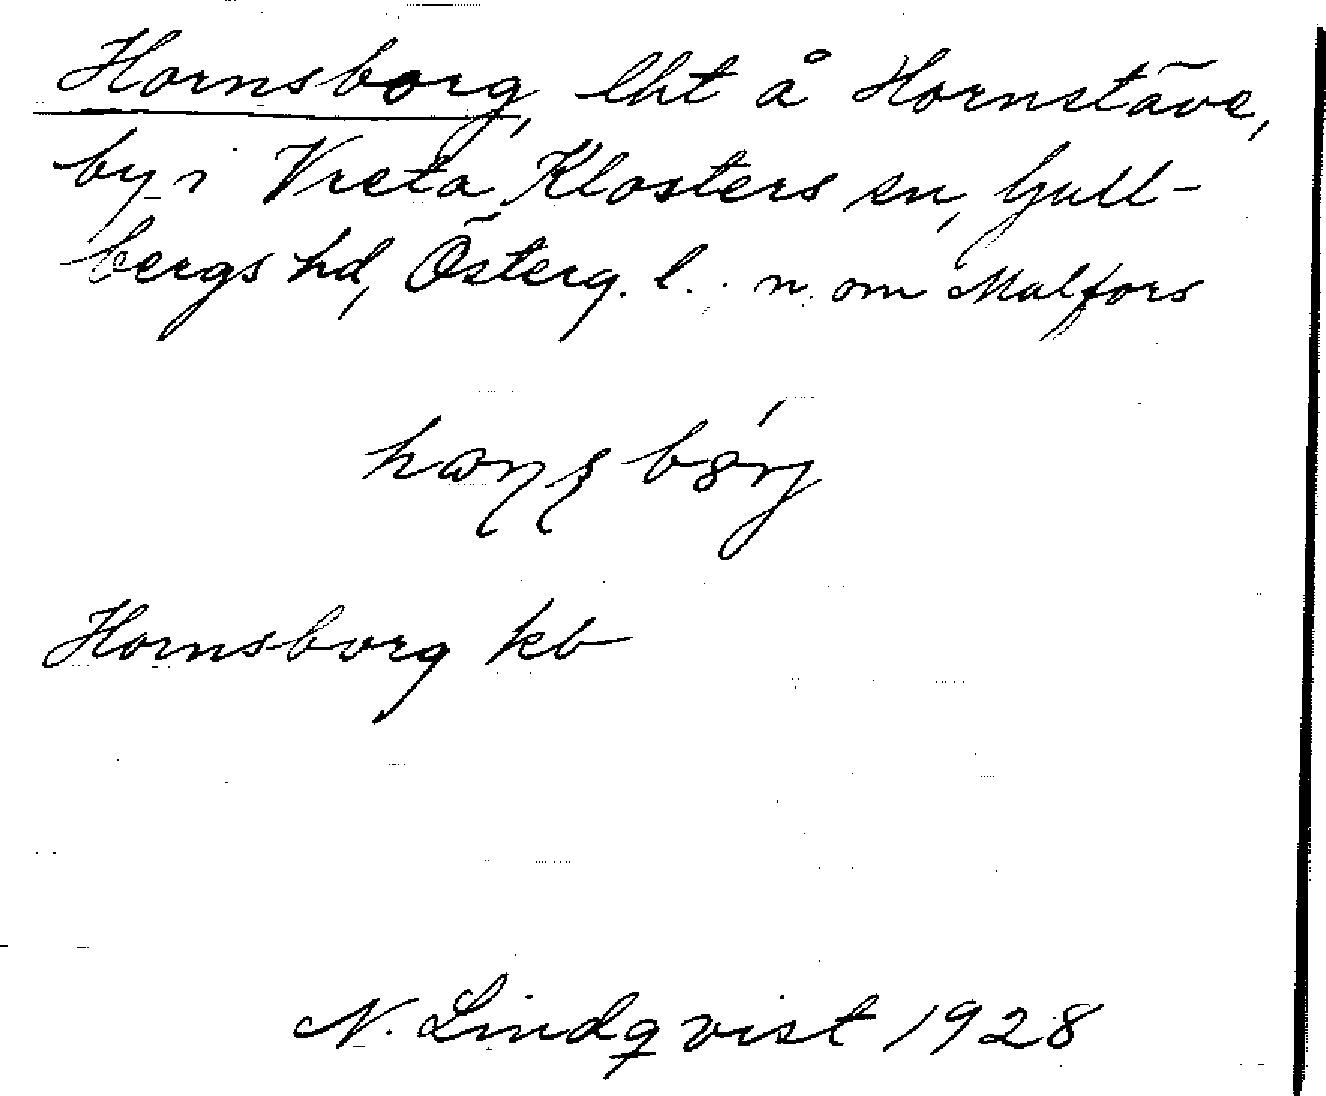 Hornsborg, lht å Hornstäve,
by i Vreta Klosters sn, Gull-
bergs hd, Österg. l. n. om Malfors
Hornsborg kb
N. Lindqvist 1928